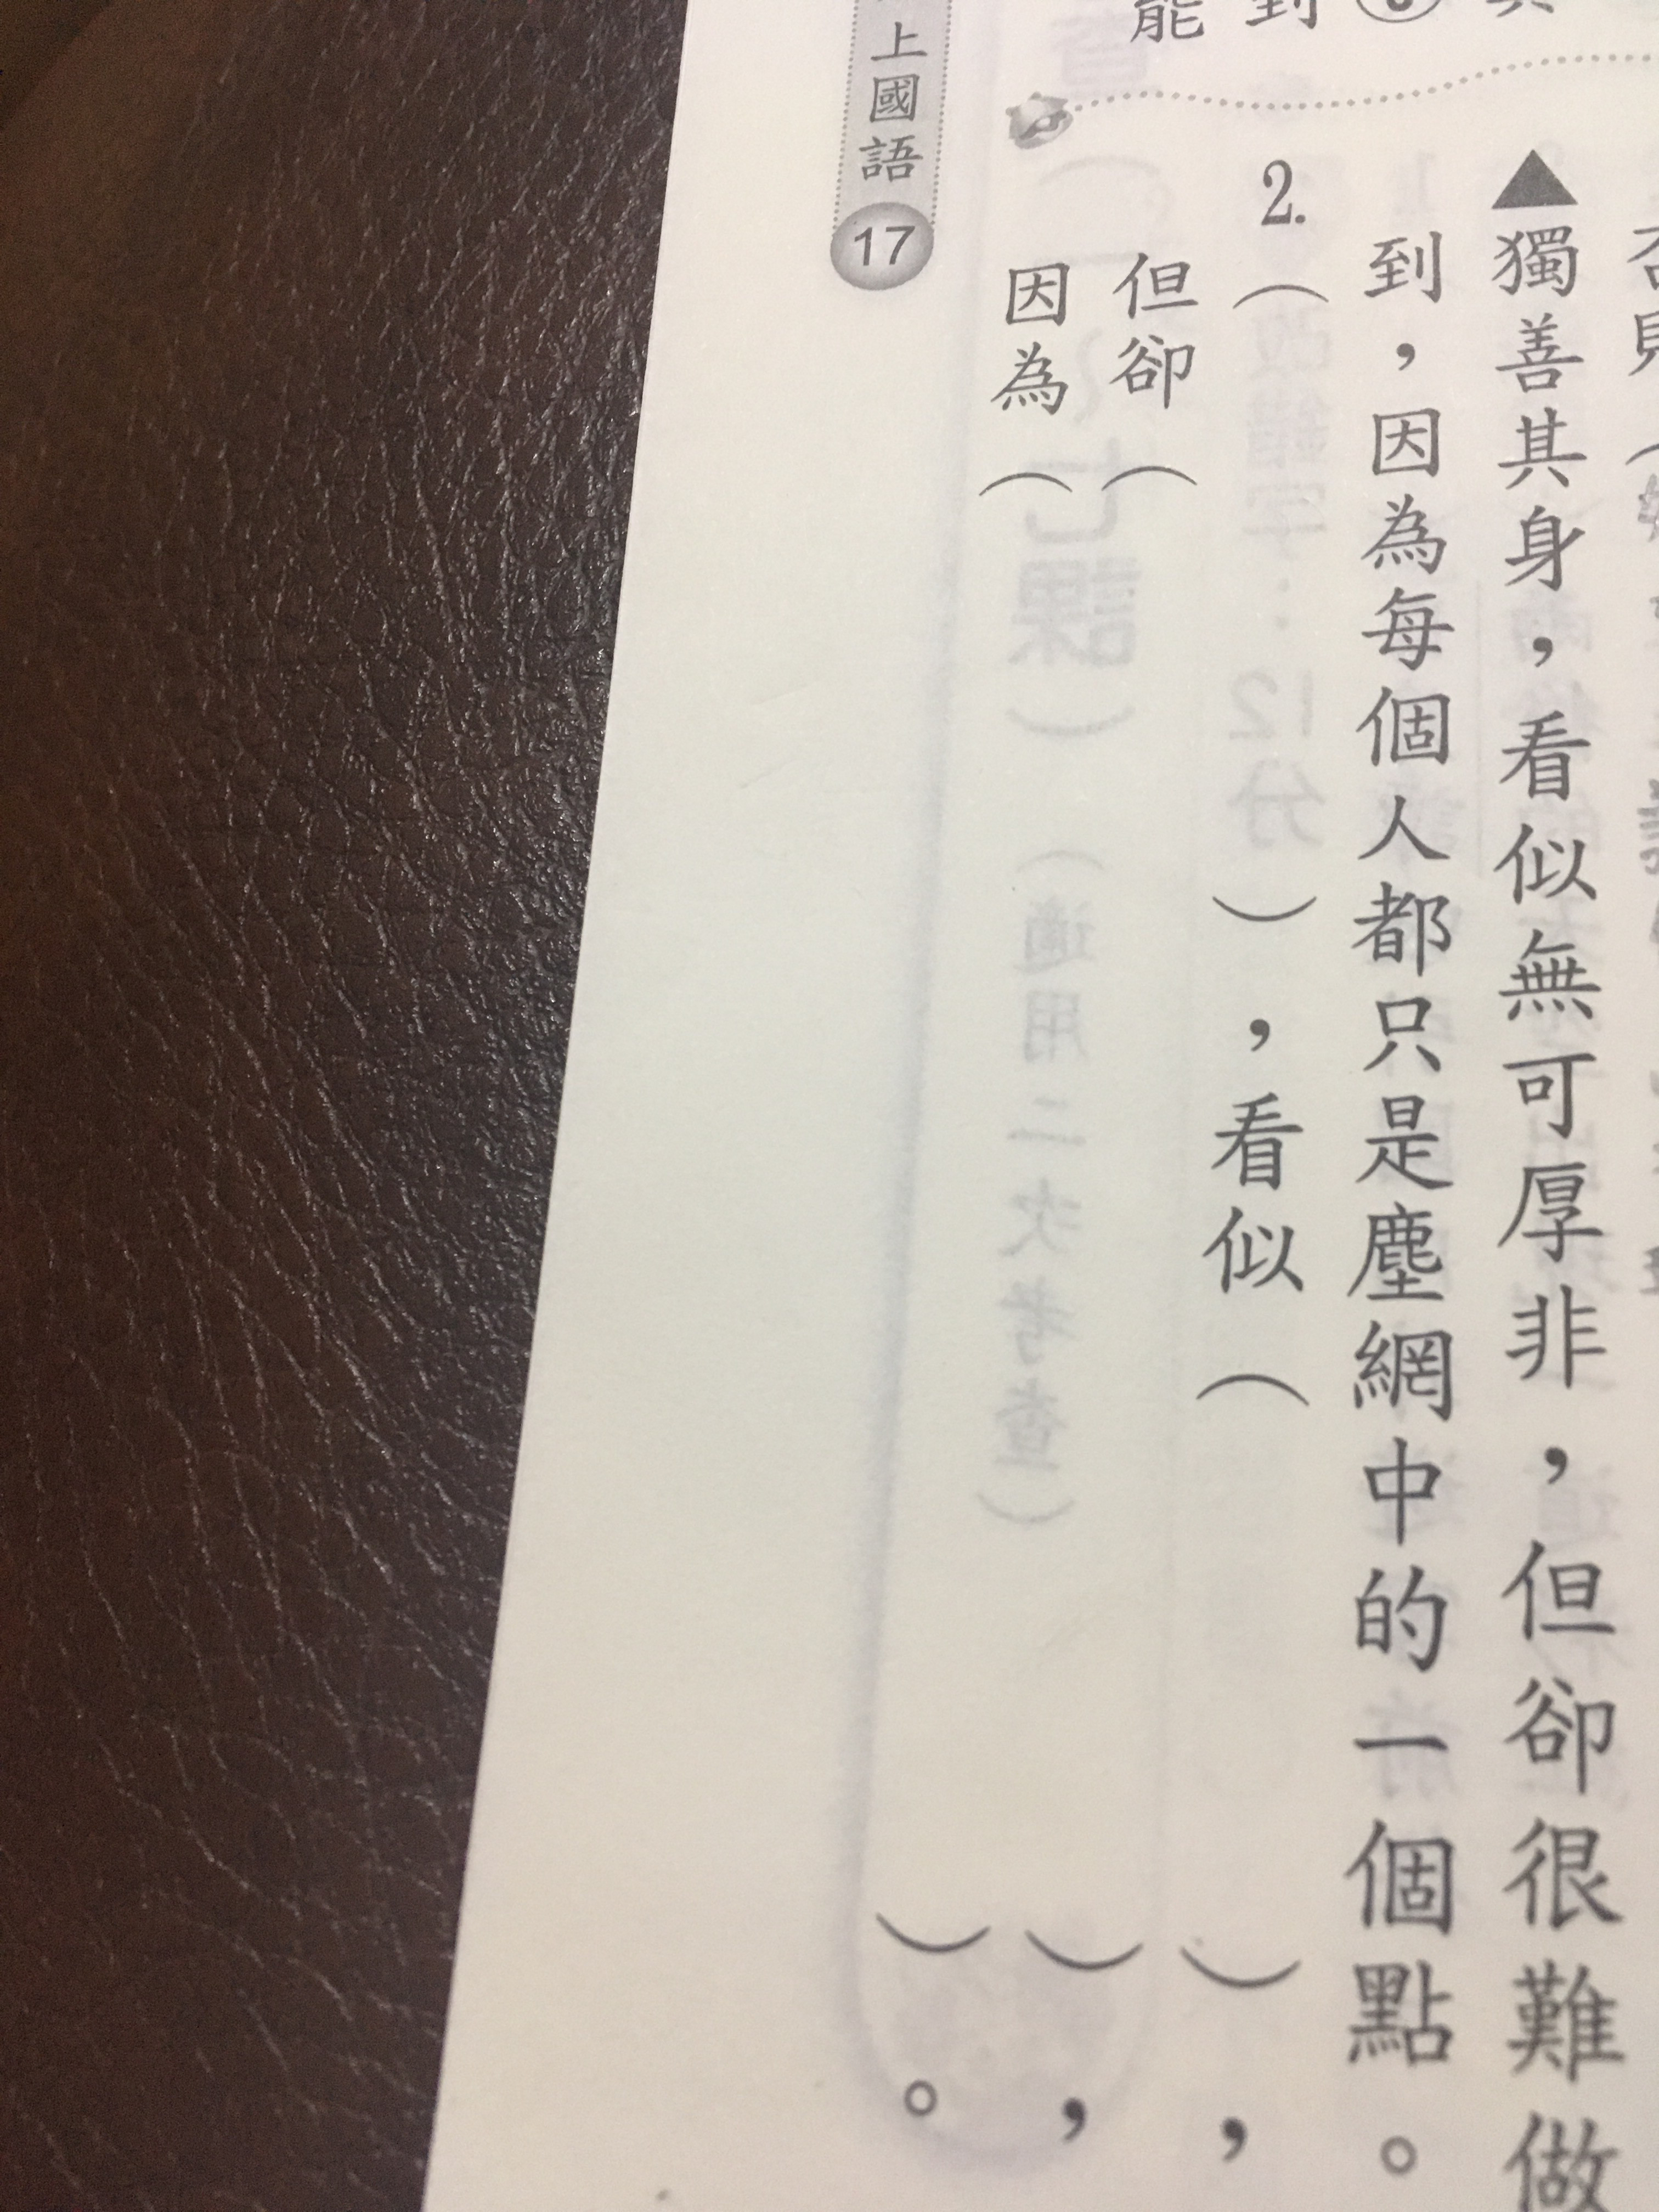 ▲獨善其身，看似無可厚非，但卻很難做
到，因為每個人都只是塵網中的一個點。
2.（　　　），看似（　　　），
但卻（　　　），
因為（　　　）。
上國語 17